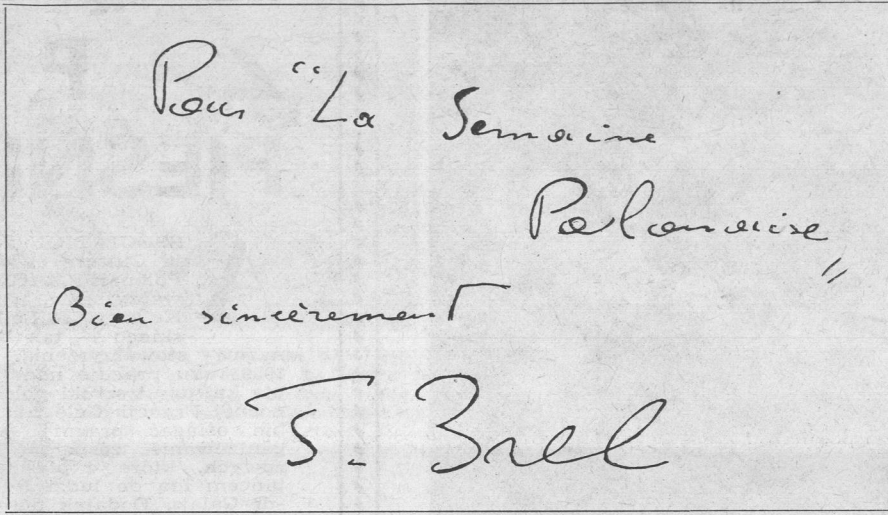 Pour "La Semaine
Polonaise"
Bien sincèrement
J. Brel